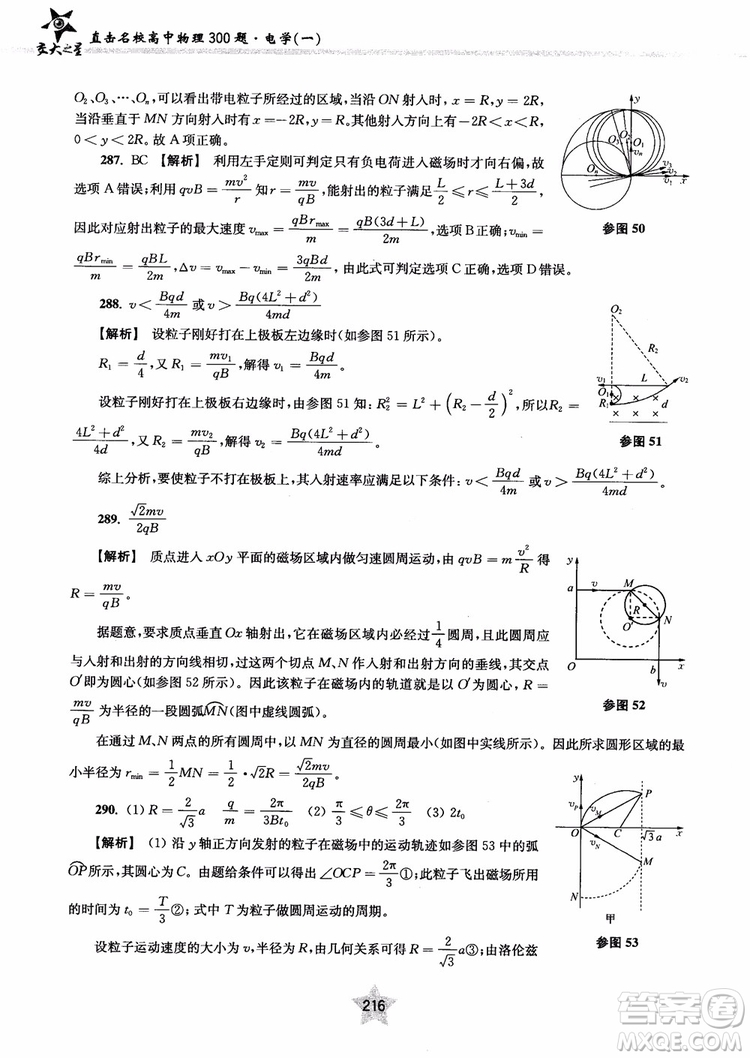 交大之星 直击名校高中物理300题·电学(一)
O₂、O₃、…、Oₙ,可以看出带电粒子所经过的区域,当沿 ON 射入时,x=R,y=2R,当
沿垂直于 MN 方向射入时有 x=-2R。其他粒子介于两者之间,有-2R<x<R,
0<y<2R。故 A 项正确。
287. BC 【解析】 利用左手定则可判定只有负电荷进入磁场时才向右偏,故
选项 A 错误;利用 qvB=mv²/r 知 r=mv/qB,能射出的粒子满足 L/2≤r≤(L+3d)/2,
因此对应射出粒子的最大速度 v_max=qBr_max/m=qB(3d+L)/2m,选项 B 正确;v_min=
qBr_min/m=qBL/2m,Δv=v_max-v_min=3qBd/2m,由此式可判定选项 C 正确,选项 D 错误。
288. v<Bqd/4m 或 v>Bq(4L²+d²)/4md
【解析】 设粒子刚好打在上极板左边缘时(如参图 51 所示)。
R₁=d/4,又 R₁=mv₁/qB,解得 v₁=Bqd/4m。
设粒子刚好打在上极板右边缘时,由参图 51 知:R₂²=L²+(R₂-d/2)²,所以R₂=
(4L²+d²)/4d,又 R₂=mv₂/qB,解得 v₂=Bq(4L²+d²)/4md。
综上分析,要使粒子不打在极板上,其入射速率应满足以下条件:v<Bqd/4m 或 v>Bq(4L²+d²)/4md。
289. √2mv/2qB
【解析】 质点进入 xOy 平面的磁场区域内做匀速圆周运动,由 qvB=m v²/R 得
R=mv/qB。
据题意,要求质点垂直 Ox 轴射出,它在磁场区域内必经过 1/4 圆周,且此圆周应
与入射和出射的方向线相切,过这两个切点 M、N 作入射和出射方向的垂线,其交点
O′即为圆心(如参图 52 所示)。因此该粒子在磁场内的轨道就是以 O′为圆心,R=
mv/qB 为半径的一段圆弧⌒MN(图中虚线圆弧)。
在通过 M、N 两点的所有圆周中,以 MN 为直径的圆周最小(如图中实线所示)。因此所求圆形区域的最
小半径为 r_min=1/2 MN=1/2·√2R=√2mv/2qB。
290. (1) R=2/√3 a q/m=2π/3Bt₀ (2) π/3≤θ≤2π/3 (3) 2t₀
【解析】 (1) 沿 y 轴正方向发射的粒子在磁场中的运动轨迹如参图 53 中的弧
⌒OP所示,其圆心为 C。由题给条件可以得出∠OCP=2π/3①;此粒子飞出磁场所用
的时间为 t₀=T/3②;式中 T 为粒子做圆周运动的周期。
设粒子运动速度的大小为 v,半径为 R,由几何关系可得 R=2/√3 a③;由洛伦兹
y
O₁
O₃
vₙ
Oₙ
v₃
v₂
v₁
x
参图 50
O₂
R₂
v₁
L
v₂
O₁
R₁
d
参图 51
y
a
v
M
R
O′
N
O
b
x
v
参图 52
y
v_P
P
v_M
O
C
√3a
x
v_N
M
N
甲
参图 53
216
答案圈
MXQE.COM